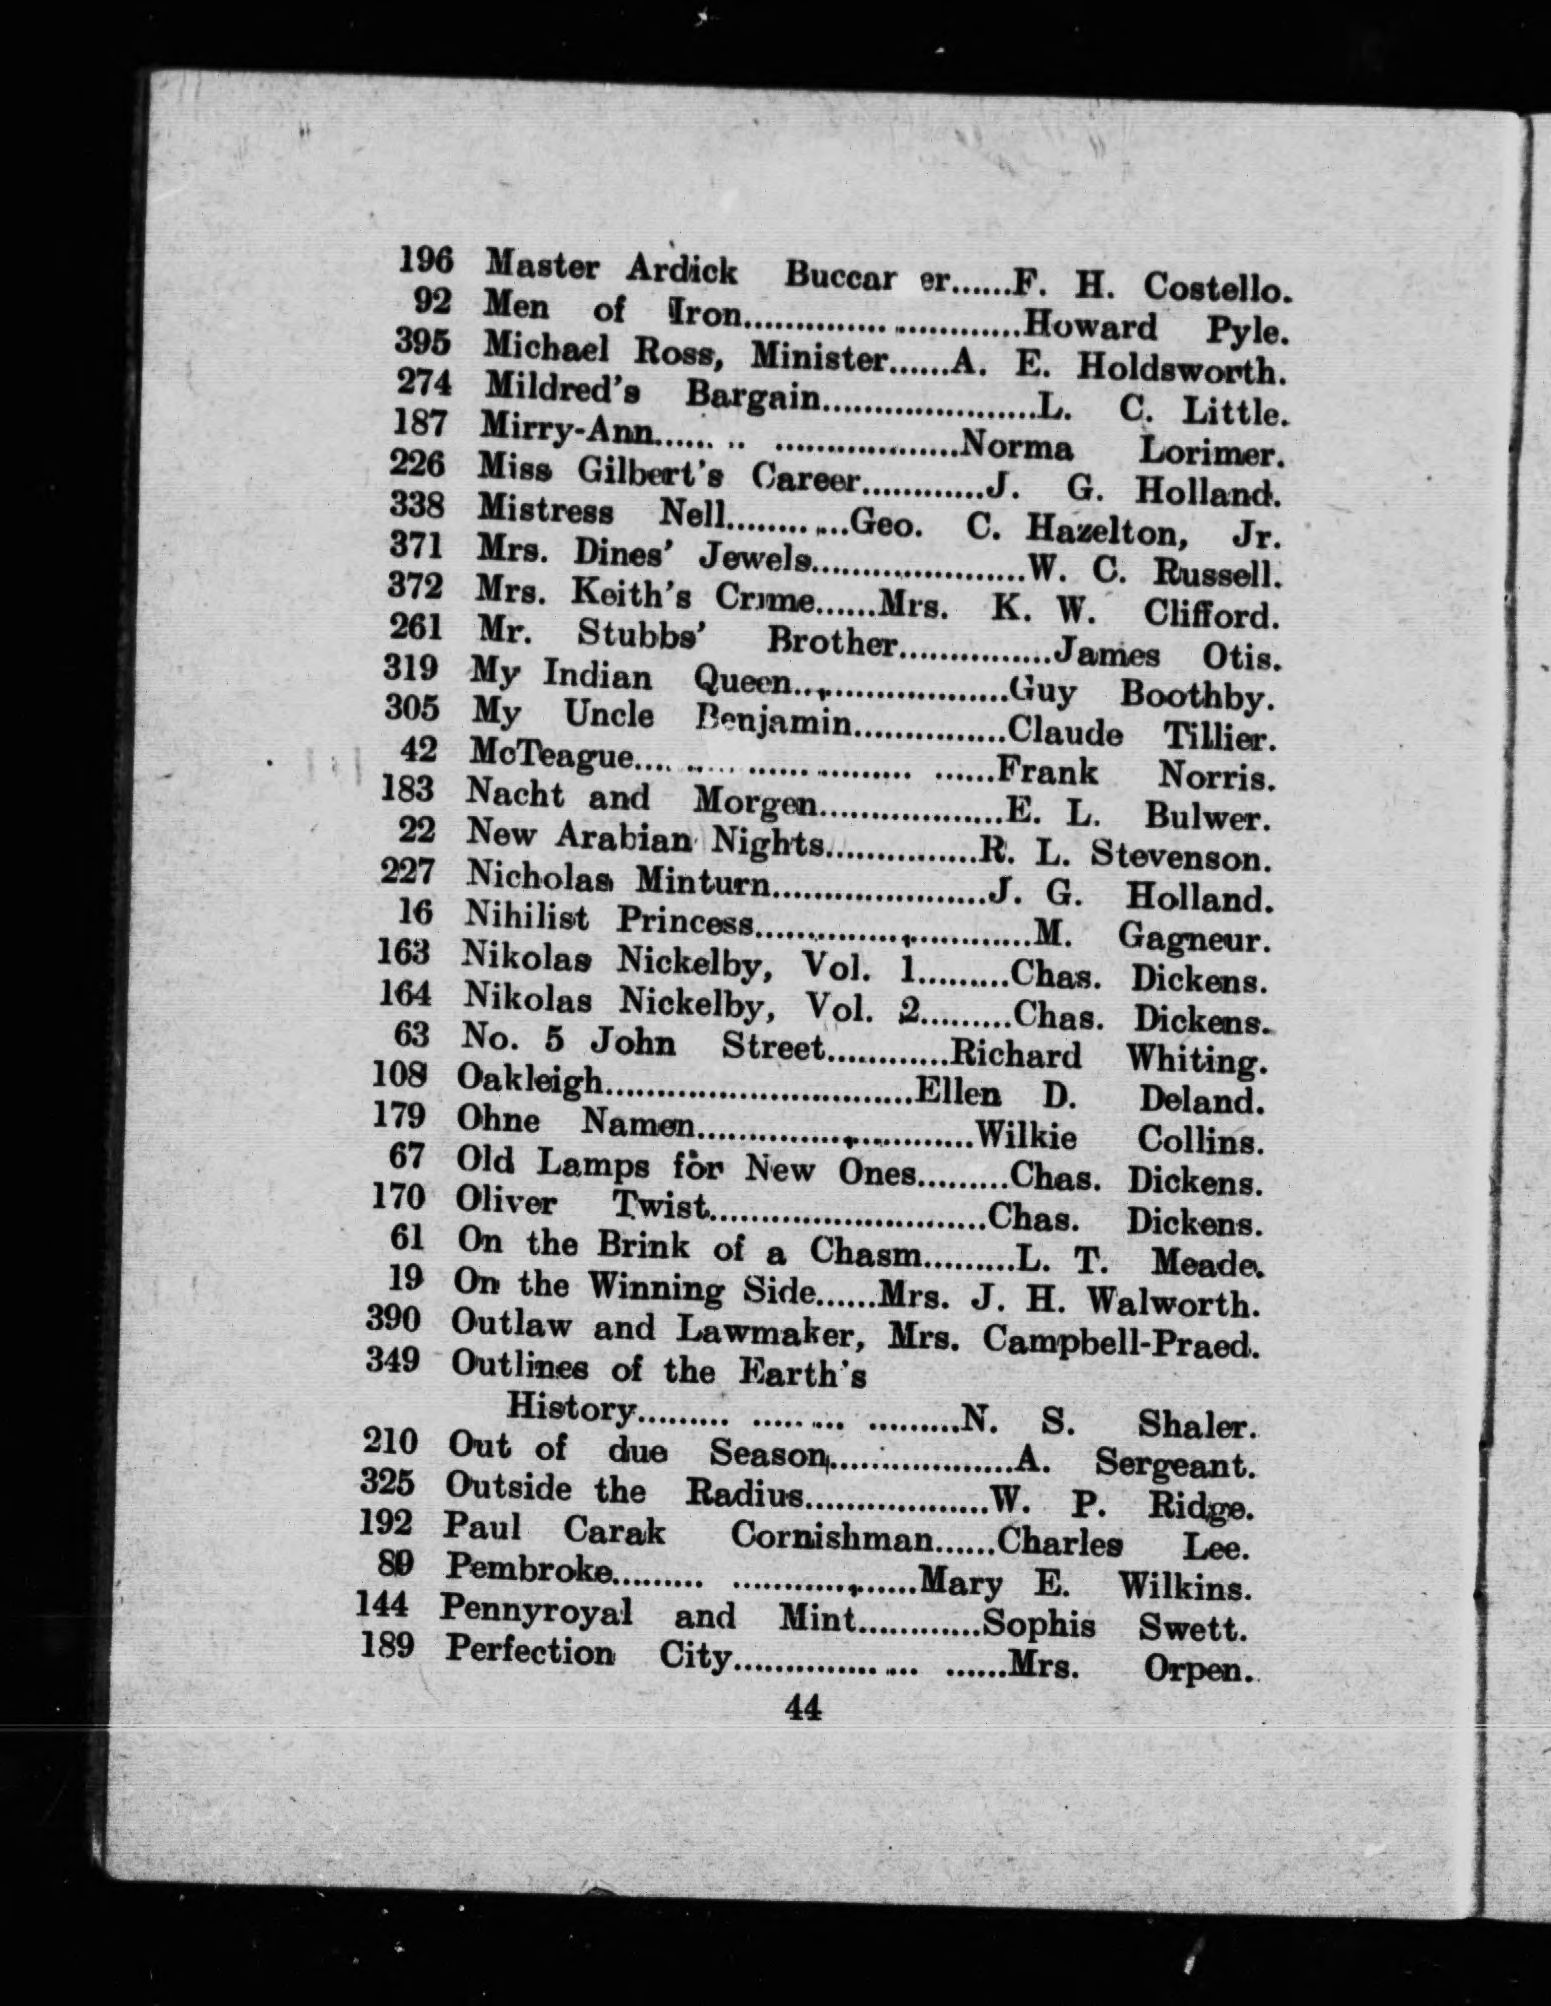 196 Master Ardick Buccar er......F. H. Costello.
92 Men of Iron...........................Howard Pyle.
395 Michael Ross, Minister......A. E. Holdsworth.
274 Mildred's Bargain.....................L. C. Little.
187 Mirry-Ann...... .. ..................Norma Lorimer.
226 Miss Gilbert's Career............J. G. Holland.
338 Mistress Nell............Geo. C. Hazelton, Jr.
371 Mrs. Dines' Jewels.....................W. C. Russell.
372 Mrs. Keith's Crime......Mrs. K. W. Clifford.
261 Mr. Stubbs' Brother...............James Otis.
319 My Indian Queen.....................Guy Boothby.
305 My Uncle Benjamin...............Claude Tillier.
42 McTeague.... ..... ............... ......Frank Norris.
183 Nacht and Morgen..................E. L. Bulwer.
22 New Arabian Nights...............R. L. Stevenson.
227 Nicholas Minturn.....................J. G. Holland.
16 Nihilist Princess...........................M. Gagneur.
163 Nikolas Nickelby, Vol. 1.........Chas. Dickens.
164 Nikolas Nickelby, Vol. 2.........Chas. Dickens.
63 No. 5 John Street............Richard Whiting.
108 Oakleigh..............................Ellen D. Deland.
179 Ohne Namen...........................Wilkie Collins.
67 Old Lamps for New Ones.........Chas. Dickens.
170 Oliver Twist...........................Chas. Dickens.
61 On the Brink of a Chasm.........L. T. Meade.
19 On the Winning Side......Mrs. J. H. Walworth.
390 Outlaw and Lawmaker, Mrs. Campbell-Praed.
349 Outlines of the Earth's
History......... ......... .........N. S. Shaler.
210 Out of due Season..................A. Sergeant.
325 Outside the Radius..................W. P. Ridge.
192 Paul Carak Cornishman......Charles Lee.
Pembroke......... ..................Mary E. Wilkins.
144 Pennyroyal and Mint............Sophis Swett.
189 Perfection City.................. ......Mrs. Orpen.
44